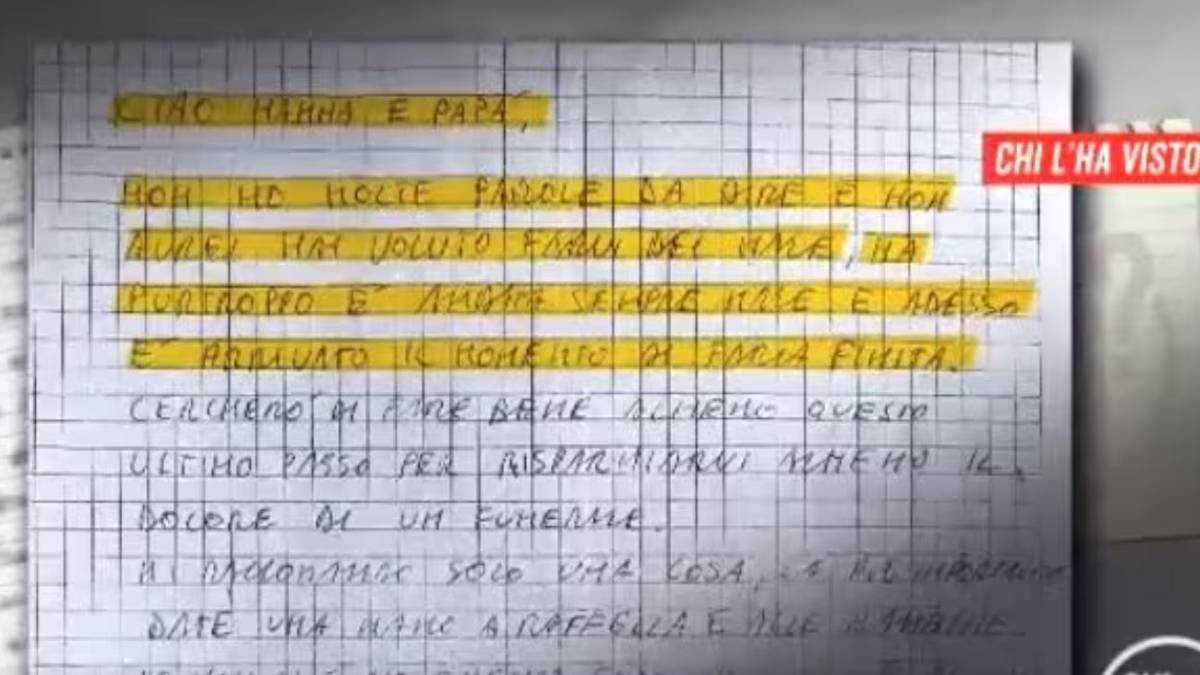 CIAO MAMMA E PAPA',
CHI L'HA VISTO
NON HO MOLTE PAROLE DA DIRE E NON
AVREI MAI VOLUTO FARVI DEL MALE, MA
PURTROPPO E' ANDATA SEMPRE MALE E ADESSO
E' ARRIVATO IL MOMENTO DI FARLA FINITA.
CERCHERO' DI FARE BENE ALMENO QUESTO
ULTIMO PASSO PER RISPARMIARVI ALMENO IL
DOLORE DI UN FUNERALE.
MI RACCOMANDO SOLO UNA COSA, LA PIU' IMPORTANTE
DATE UNA MANO A RAFFAELLA E ALLE BAMBINE.